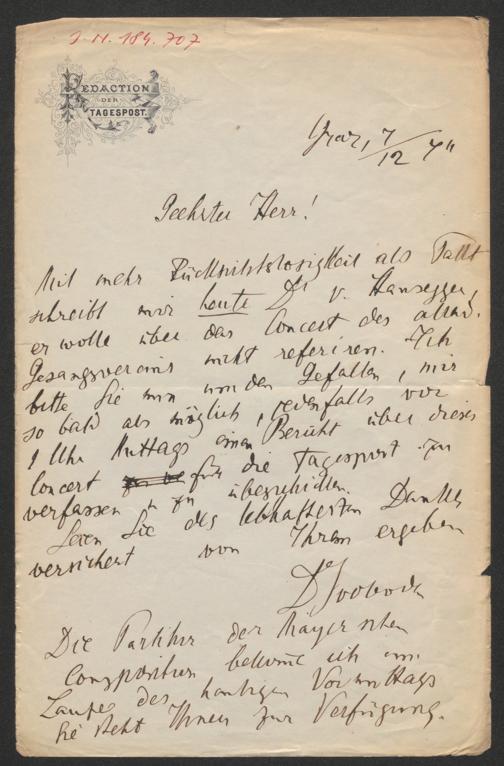 I. N. 184.707
REDACTION
DER
TAGESPOST.
Graz, 7/12 74
Geehrter Herr!
Mit mehr Rücksichtslosigkeit als Takt
schreibt mir heute Dr v. Hausegger,
er wolle über das Concert des akad.
Gesangvereins nicht referiren. Ich
bitte Sie nun um den Gefallen, mir
so bald als möglich, jedenfalls vor
1 Uhr Mittags einen Bericht über dieses
Concert für die Tagespost zu
verfassen u zu überschicken.
Seien Sie des lebhaftesten Dankes
versichert von Ihrem ergeben
Dr Svoboda
Die Partitur der Mayer'schen
Composition bekomme ich im
Laufe des heutigen Vormittags
Sie steht Ihnen zur Verfügung.